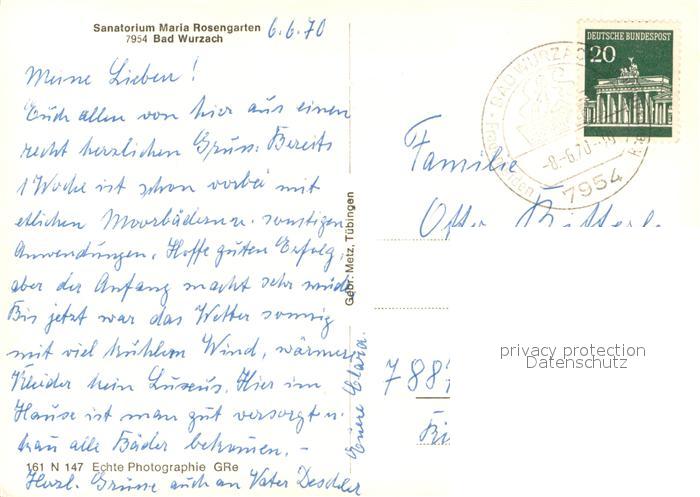 Sanatorium Maria Rosengarten
7954 Bad Wurzach
6.6.70
Meine Lieben!
Euch allen von hier aus einen
recht herzlichen Gruss. Bereits
1 Woche ist schon vorbei mit
etlichen Moorbädern u. sonstigen
Anwendungen. Hoffe guten Erfolg,
aber der Anfang macht sehr müde
Bis jetzt war das Wetter sonnig
mit viel kühlem Wind, wärmere
Kleider kein Luxus. Hier im
Hause ist man gut versorgt u.
kan alle Bäder bekommen. –
Herzl. Grüsse auch an Vater Deschler
Eure Clara.
161 N 147 Echte Photographie GRe
Gebr. Metz, Tübingen
DEUTSCHE BUNDESPOST
20
BAD WURZACH
-8.-6.70-
7954
Familie
788
privacy protection
Datenschutz